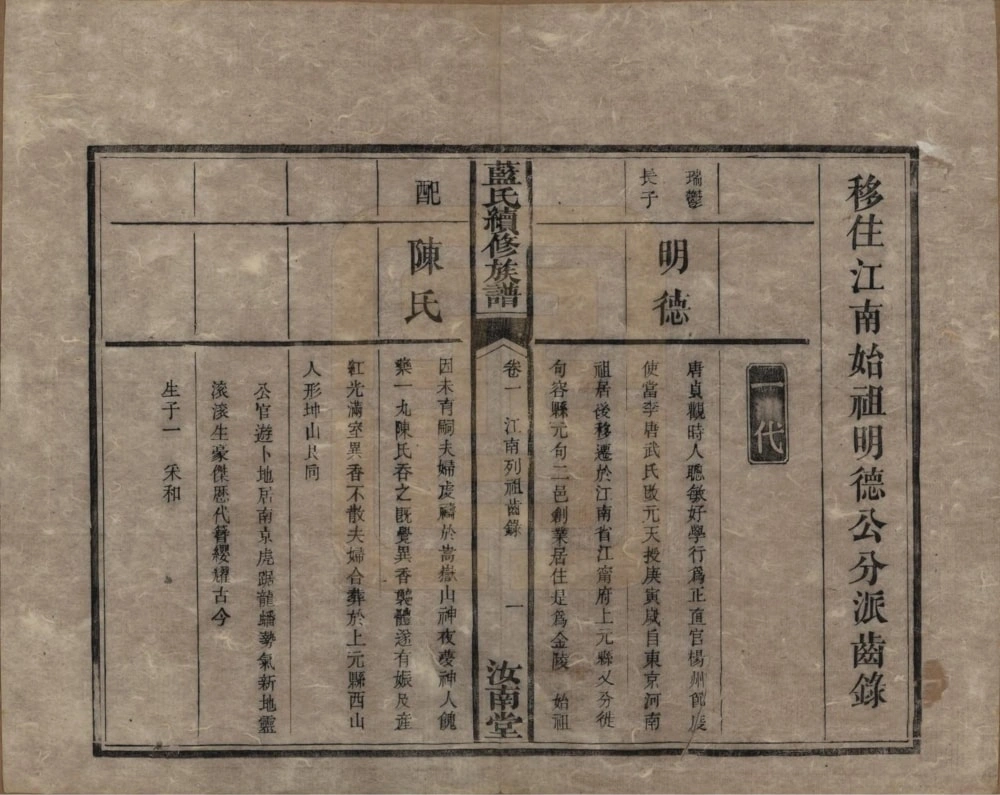 移住江南始祖明德公分派齒錄
一代
瑞鬱
長子
明德
唐貞觀時人聰敏好學行爲正直官楊州節度
使當李唐武氏改元天授庚寅歲自東京河南
祖居後移遷於江南省江甯府上元縣又分徙
句容縣元句二邑創業居住是爲金陵 始祖
藍氏續修族譜
卷一 江南列祖齒錄 一
汝南堂
配
陳氏
因未育嗣夫婦虔禱於嵩嶽山神夜夢神人餽
藥一丸陳氏吞之既覺異香襲體遂有娠及產
紅光滿室異香不散夫婦合葬於上元縣西山
人形坤山艮同
公官遊卜地居南京虎踞龍蟠勢氣新地靈
滾滾生豪傑歷代簪纓耀古今
生子一 采和